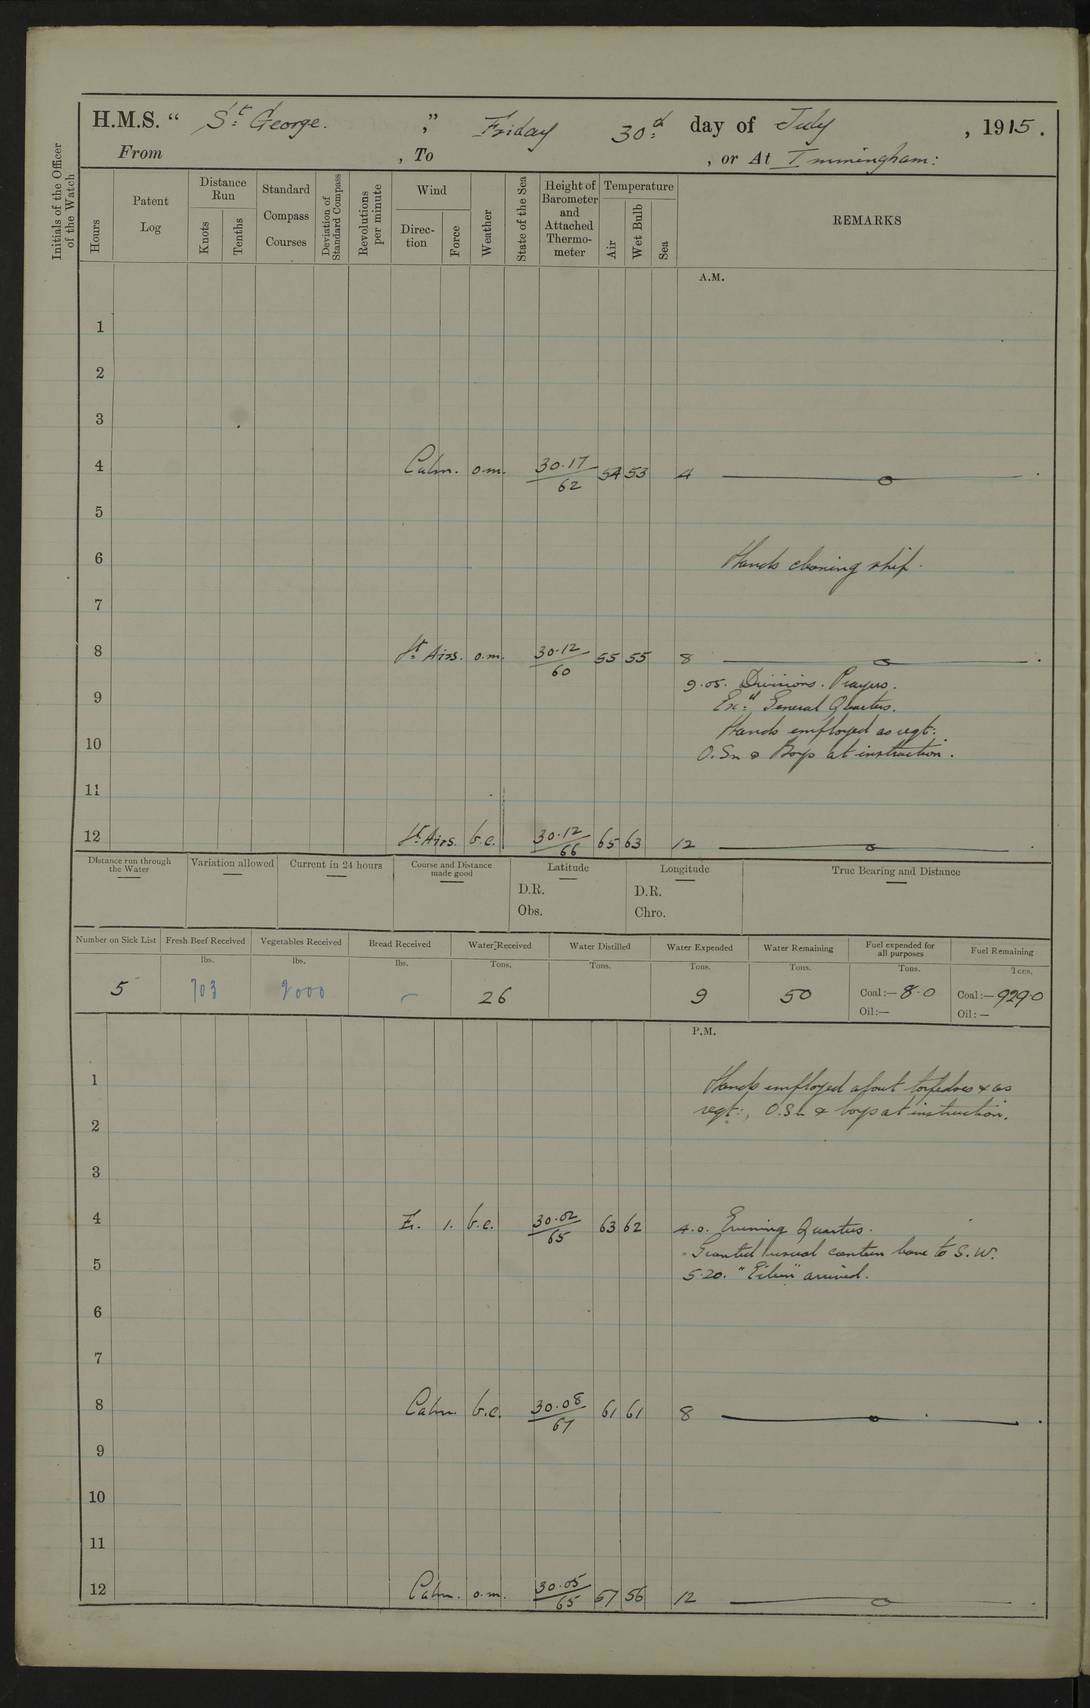 H.M.S. “ St. George. ,” Friday 30.d day of July , 1915.
From , To , or At Immingham:
Initials of the Officer of the Watch
Hours
Patent Log
Distance Run
Knots
Tenths
Standard Compass Courses
Deviation of Standard Compass
Revolutions per minute
Wind
Direction
Force
Weather
State of the Sea
Height of Barometer and Attached Thermometer
Temperature
Air
Wet Bulb
Sea
REMARKS
A.M.
1
2
3
4 Calm. o.m. 30.17/62 54 53 4
5
6 Hands cleaning ship.
7
8 Lt. Airs. o.m. 30.12/60 55 55 8
9.05. Divisions. Prayers.
9 Ex:d General Quarters.
Hands employed as reqt:
10 O.Sn & Boys at instruction.
11
12 Lt. Airs. b.c. 30.12/66 65 63 12
Distance run through the Water
Variation allowed
Current in 24 hours
Course and Distance made good
Latitude
D.R.
Obs.
Longitude
D.R.
Chro.
True Bearing and Distance
Number on Sick List
Fresh Beef Received
Vegetables Received
Bread Received
Water Received
Water Distilled
Water Expended
Water Remaining
Fuel expended for all purposes
Fuel Remaining
lbs. lbs. lbs. Tons. Tons. Tons. Tons. Tons. Tons.
5 703 2000 – 26 9 50 Coal:— 8.0 Coal:— 929.0
Oil:— Oil:—
P.M.
1 Hands employed about torpedoes & as
reqt:, O.Sn & boys at instruction.
2
3
4 E. 1. b.c. 30.02/65 63 62 4.0. Evening Quarters.
Granted usual canteen leave to S.W.
5 5.20. arrived.
6
7
8 Calm. b.c. 30.08/67 61 61 8
9
10
11
12 Calm. o.m. 30.05/65 57 56 12